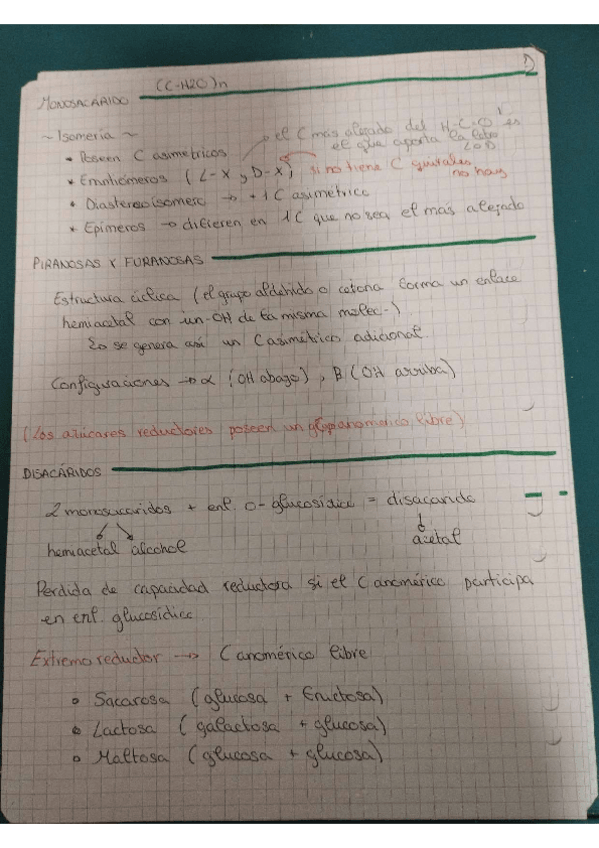 (C-H2O)n
MONOSACÁRIDO
~ Isomería ~
el C más alejado del H-C=O es
el que aporta la
L o D
• Poseen C asimetricos
• Enantiómeros (L-X y D-X) si no tiene C quirales
no hay
• Diastereoisomero → +1C asimétrico
• Epímeros → difieren en 1C que no sea el más alejado
PIRANOSAS Y FURANOSAS
Estructura cíclica (el grupo aldehido o cetona forma un enlace
hemiacetal con un -OH de la misma molec.)
Lo se genera así un C asimétrico adicional.
Configuraciones → α (OH abajo), B (OH arriba)
(Los azúcares reductores poseen un anomerico libre)
DISACÁRIDOS
2 monosacaridos + enl. O-glucosídico = disacarido
hemiacetal alcohol
acetal
Perdida de capacidad reductora si el C anomérico participa
en enl. glucosídico
Extremo reductor → C anomérico libre
• Sacarosa (glucosa + fructosa)
• Lactosa (galactosa + glucosa)
• Maltosa (glucosa + glucosa)